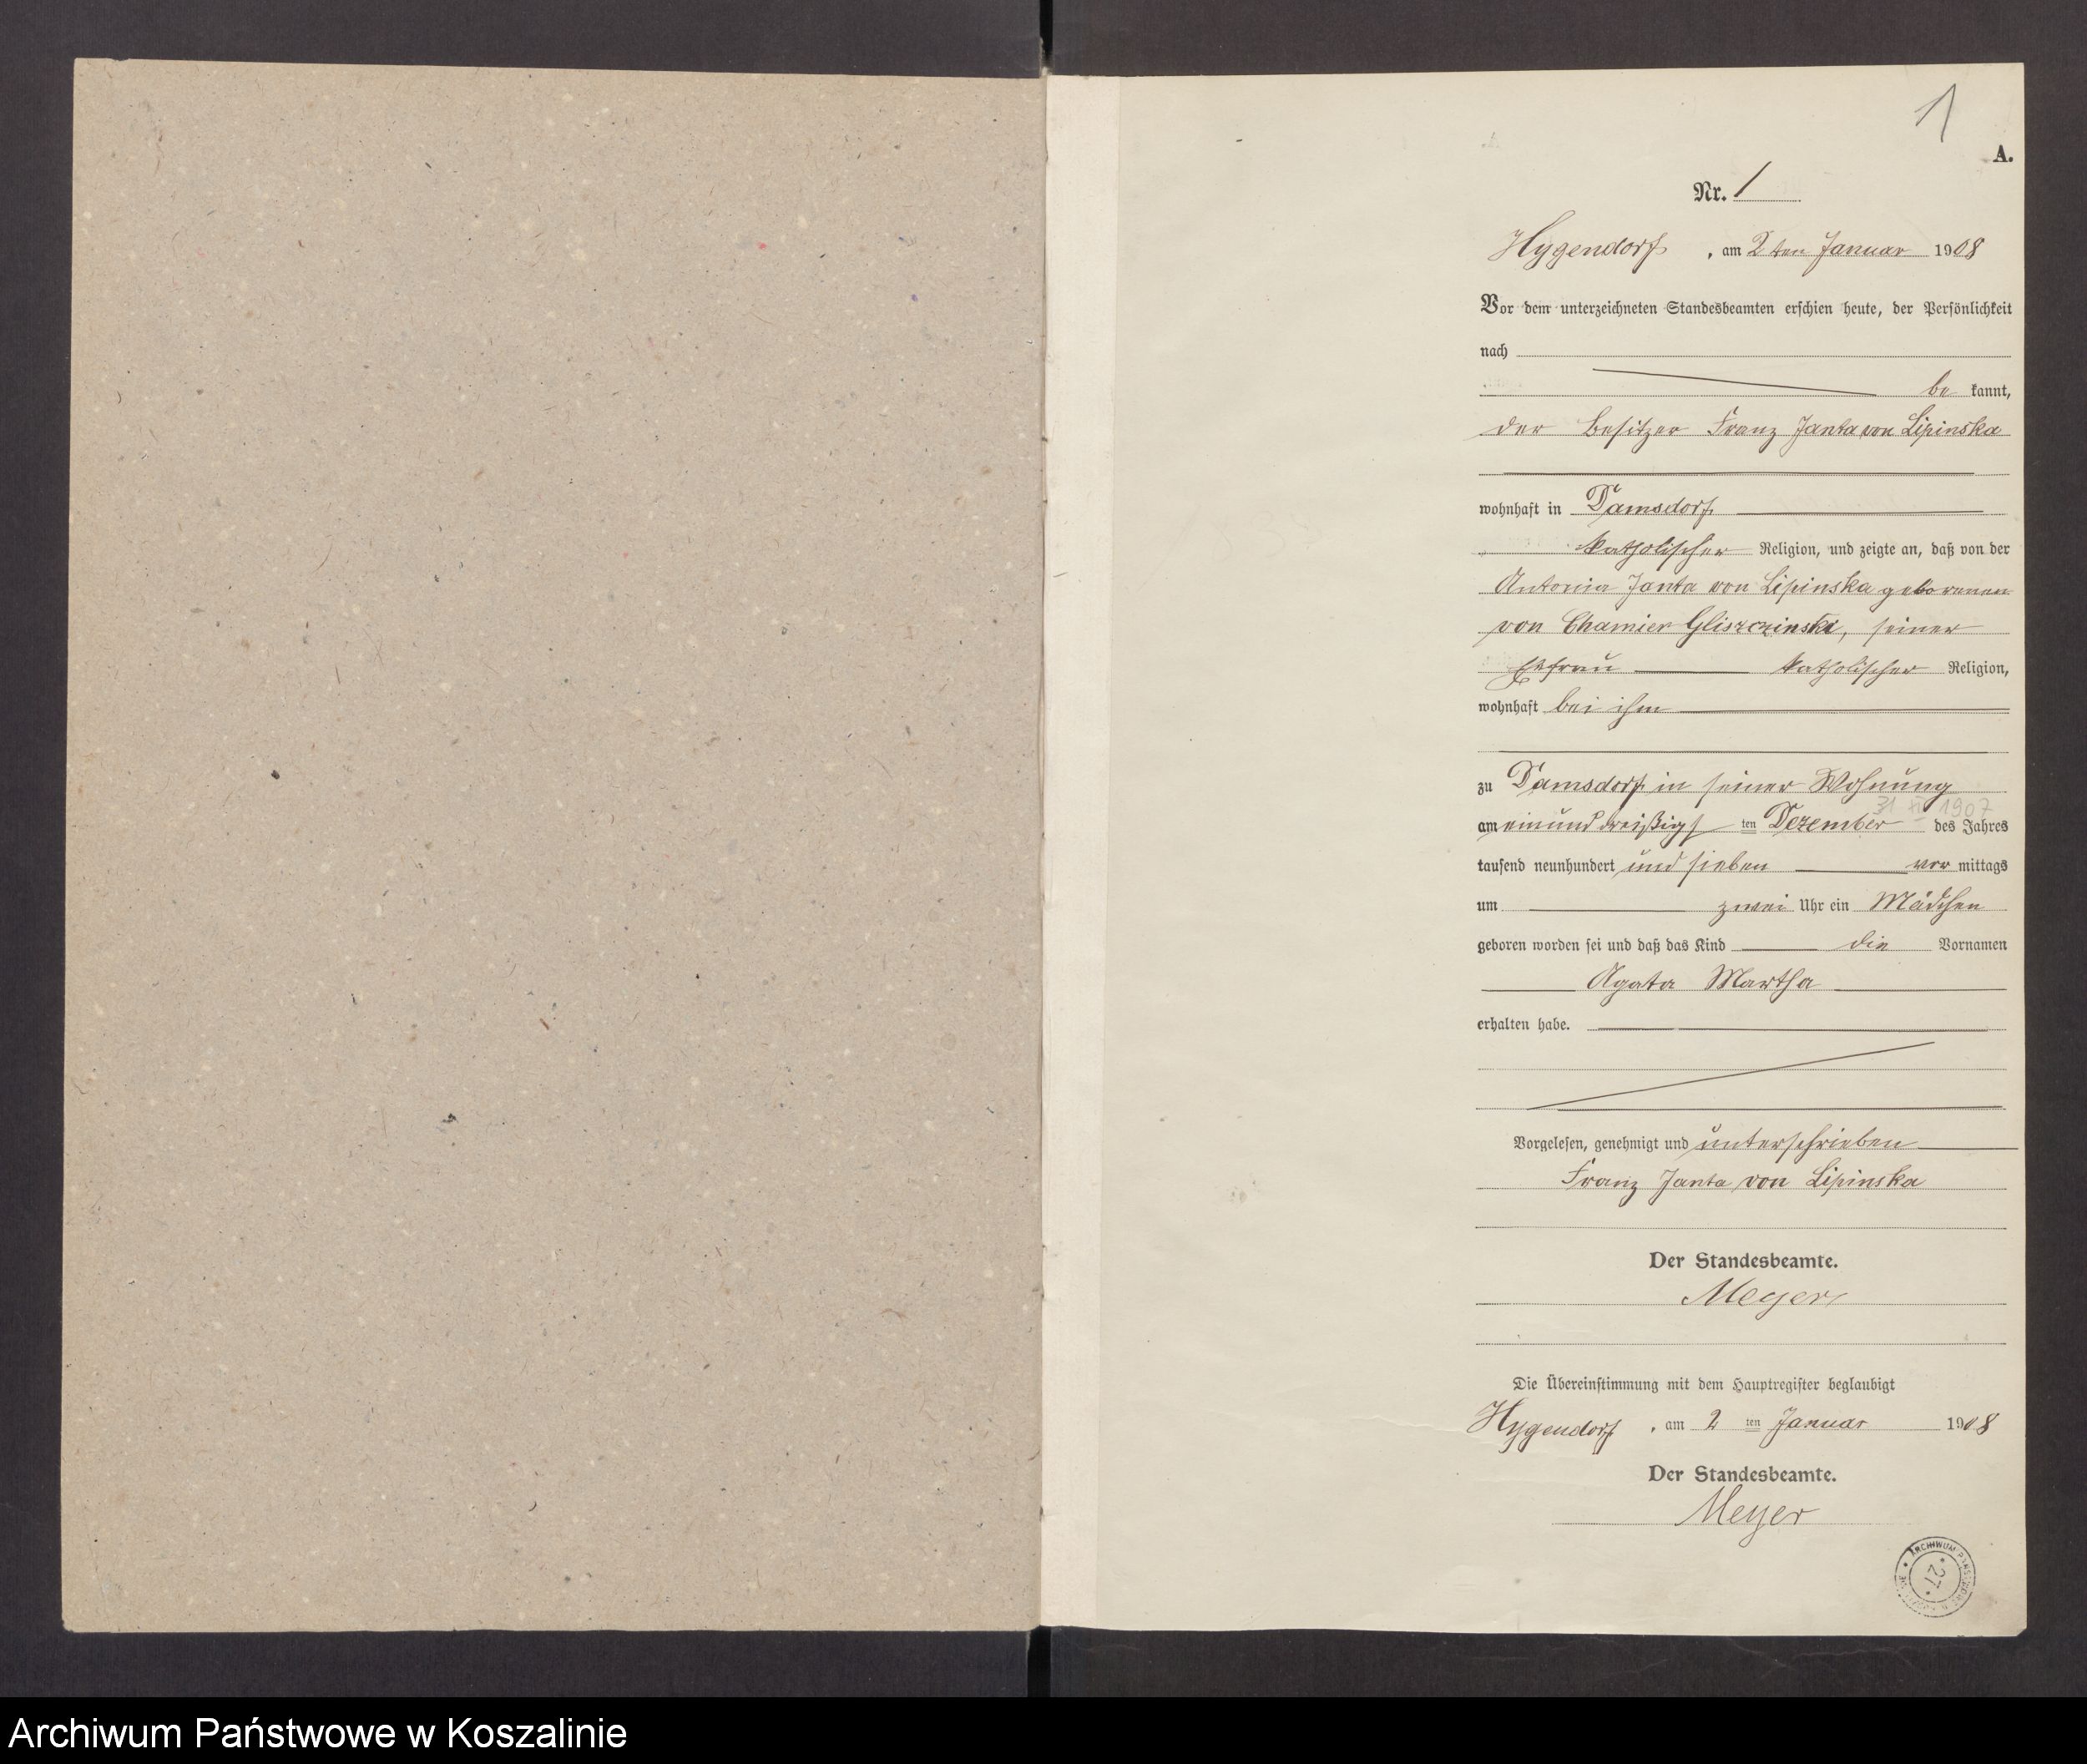 1
A.
Nr. 1
Hygendorf, am 2ten Januar 1908
Vor dem unterzeichneten Standesbeamten erschien heute, der Persönlichkeit
nach
be kannt,
der Besitzer Franz Janta von Lipinska
wohnhaft in Damsdorf
katholischer Religion, und zeigte an, daß von der
Antonia Janta von Lipinska geborenen
von Chamier Gliszczinski, seiner
Ehfrau katholischer Religion,
wohnhaft bei ihm
zu Damsdorf in seiner Wohnung
31 XII 1907
am einunddreißigsten Dezember des Jahres
tausend neunhundert und sieben vor mittags
um zwei Uhr ein Mädchen
geboren worden sei und daß das Kind die Vornamen
Agata Martha
erhalten habe.
Vorgelesen, genehmigt und unterschrieben
Franz Janta von Lipinska
Der Standesbeamte.
Meyer
Die Übereinstimmung mit dem Hauptregister beglaubigt
Hygendorf, am 2 ten Januar 1908
Der Standesbeamte.
Meyer
ARCHIWUM
27
Archiwum Państwowe w Koszalinie